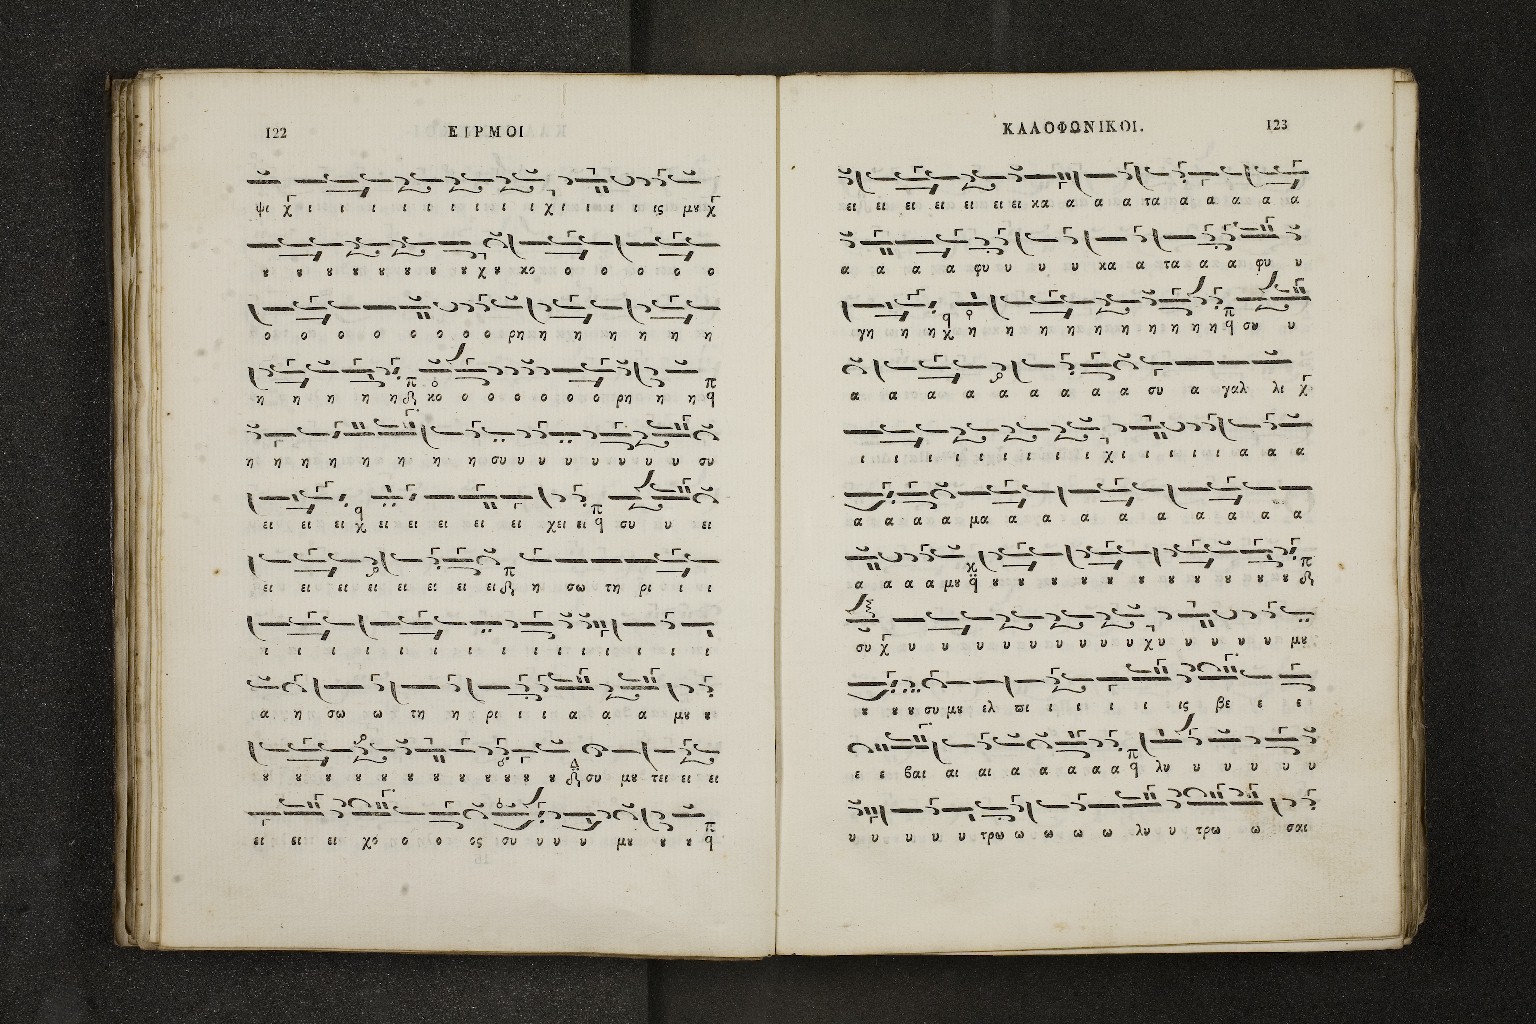 122 ΕΙΡΜΟΙ
ψι χ ι ι ι ι ι ι ι ι χι ι ι ι ις μȣ χ
ȣ ȣ ȣ ȣ ȣ ȣ ȣ ȣ χȣ κο ο ο ο ο ο
ο ο ο ο ο ο ο ο ρη η η η η η η
η η η η η κο ο ο ο ο ο ο ρη η η
η η η η η η η η συ υ υ υ υ υ υ υ συ
ει ει ει ει ει ει ει ει χει ει συ υ ει
ει ει ει ει ει ει ει ει η σω τη ρι ι ι
ι ι ι ι ι ι ι ι ι ι ι ι ι ι
α η σω ω τη η ρι ι ι α α α μȣ ȣ
ȣ ȣ ȣ ȣ ȣ ȣ ȣ ȣ ȣ ȣ ȣ ȣ συ μȣ τει ει ει
ει ει ει χο ο ο ο ος συ υ υ υ μȣ ȣ ȣ
ΚΑΛΟΦΩΝΙΚΟΙ. 123
ει ει ει ει ει ει ει κα α α α τα α α α α α
α α α α φυ υ υ υ κα α τα α α φυ υ
γη η η η η η η η η η η η η συ υ
α α α α α α α α α συ α γαλ λι χ
ι ι ι ι ι ι ι ι χι ι ι ι ι α α α
α α α α μα α α α α α α α α
α α α α μȣ ȣ ȣ ȣ ȣ ȣ ȣ ȣ ȣ ȣ ȣ ȣ
συ χ υ υ υ υ υ υ υ υ χυ υ υ υ υ μȣ
ȣ ȣ ȣ συ μȣ ελ πι ι ι ι ι ις βε ε ε
ε ε βαι αι αι α α α α α α λυ υ υ υ υ υ
υ υ υ υ υ τρω ω ω ω ω λυ υ τρω ω σαι